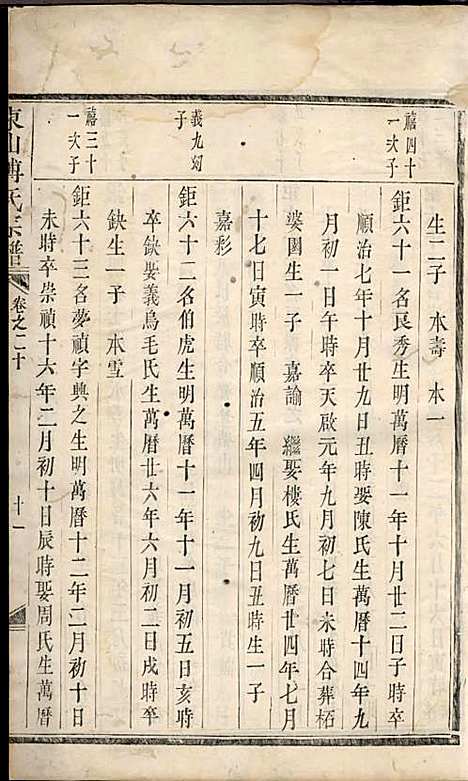 生二子 本壽 本一
禧四十
一次子
鉅六十一名良秀生明萬曆十一年十月廿二日子時卒
順治七年十月廿九日丑時娶陳氏生萬曆十四年九
月初一日午時卒天啟元年九月初七日未時合葬栢
婆園生一子 嘉諭 繼娶樓氏生萬曆廿四年七月
十七日寅時卒順治五年四月初九日丑時生一子
嘉彩
義九幼
子
鉅六十二名伯虎生明萬曆十一年十一月初五日亥時
卒缺娶義烏毛氏生萬曆廿六年六月初二日戌時卒
缺生一子 本雪
禧三十
一次子
鉅六十三名夢禎字典之生明萬曆十二年二月初十日
未時卒崇禎十六年二月初十日辰時娶周氏生萬曆
東山傅氏宗譜 卷之二十 十一